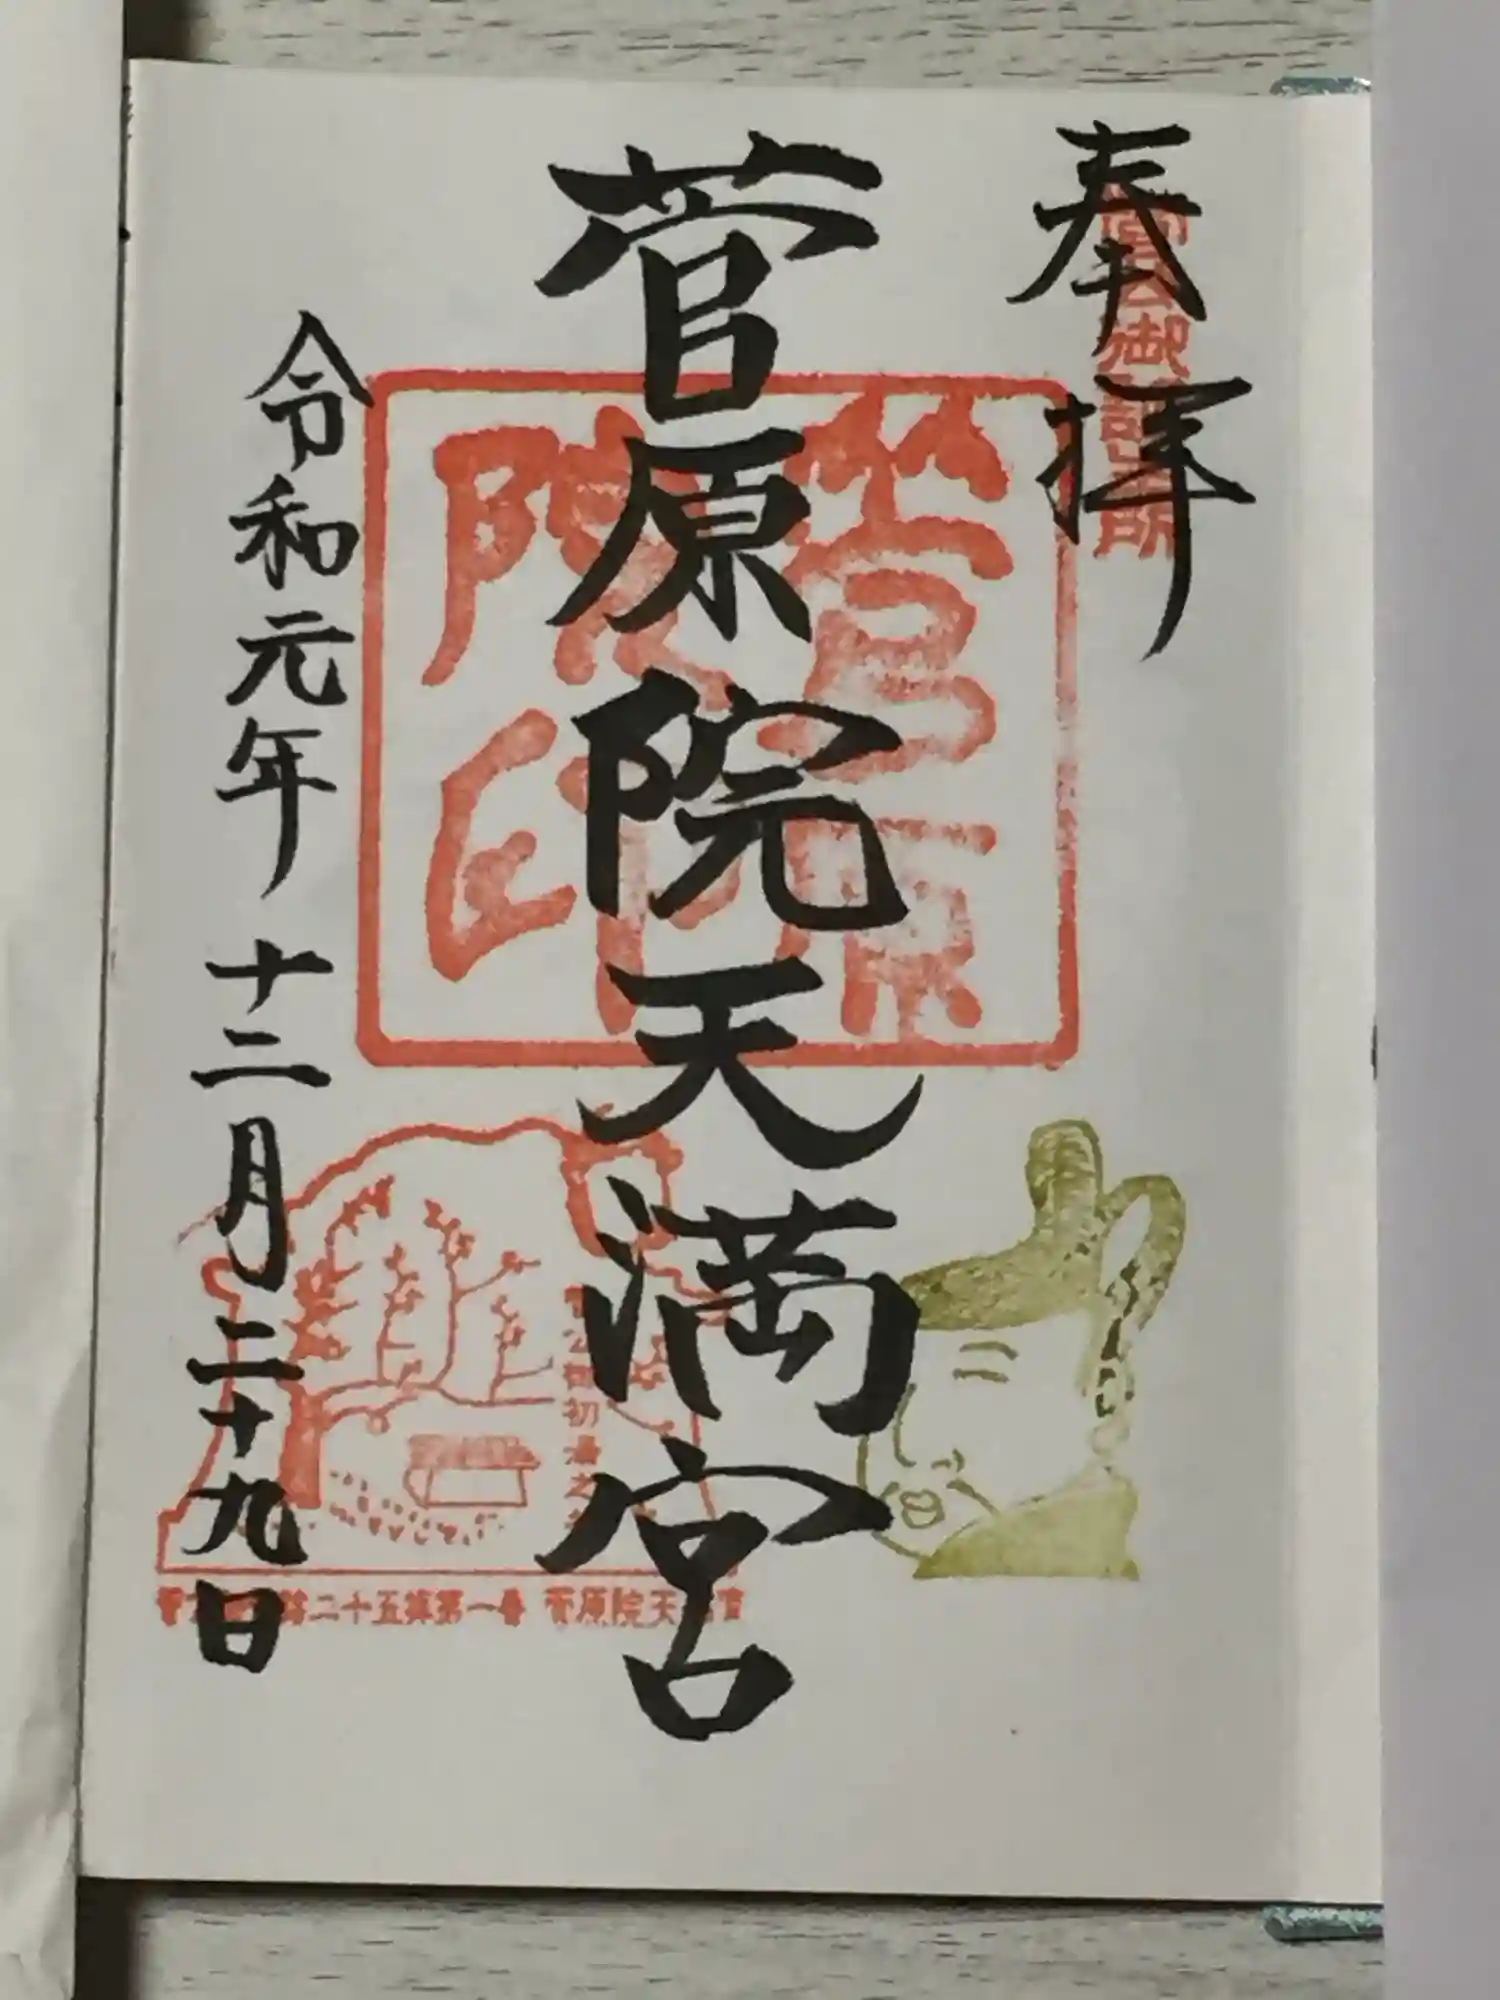 奉拝
菅公御誕生所
菅原院天満宮
菅原院印
令和元年十二月二十九日
初湯之
二十五拝第一番 菅原院天